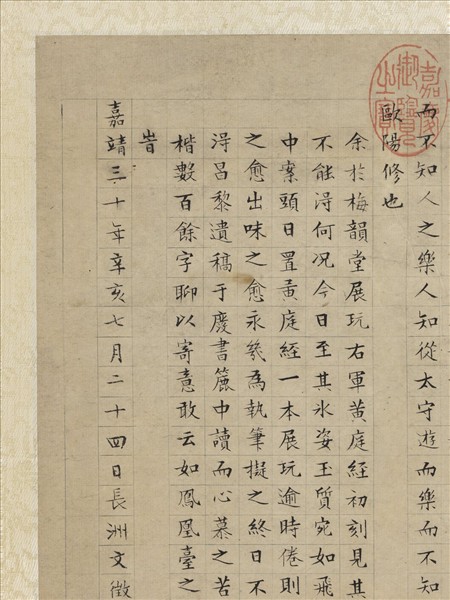 而不知人之樂人知從太守遊而樂而不知
歐陽修也
余於梅韻堂展玩右軍黃庭經初刻見其
不能淂何况今日至其氷姿玉質宛如飛
中案頭日置黃庭經一本展玩逾時倦則
之愈出味之愈永幾爲執筆擬之終日不
淂昌黎遺稿于慶書簏中讀而心慕之苦
楷數百餘字聊以寄意敢云如鳳凰臺之
嘉靖三十年辛亥七月二十四日長洲文徵
嘉慶御覽之寶